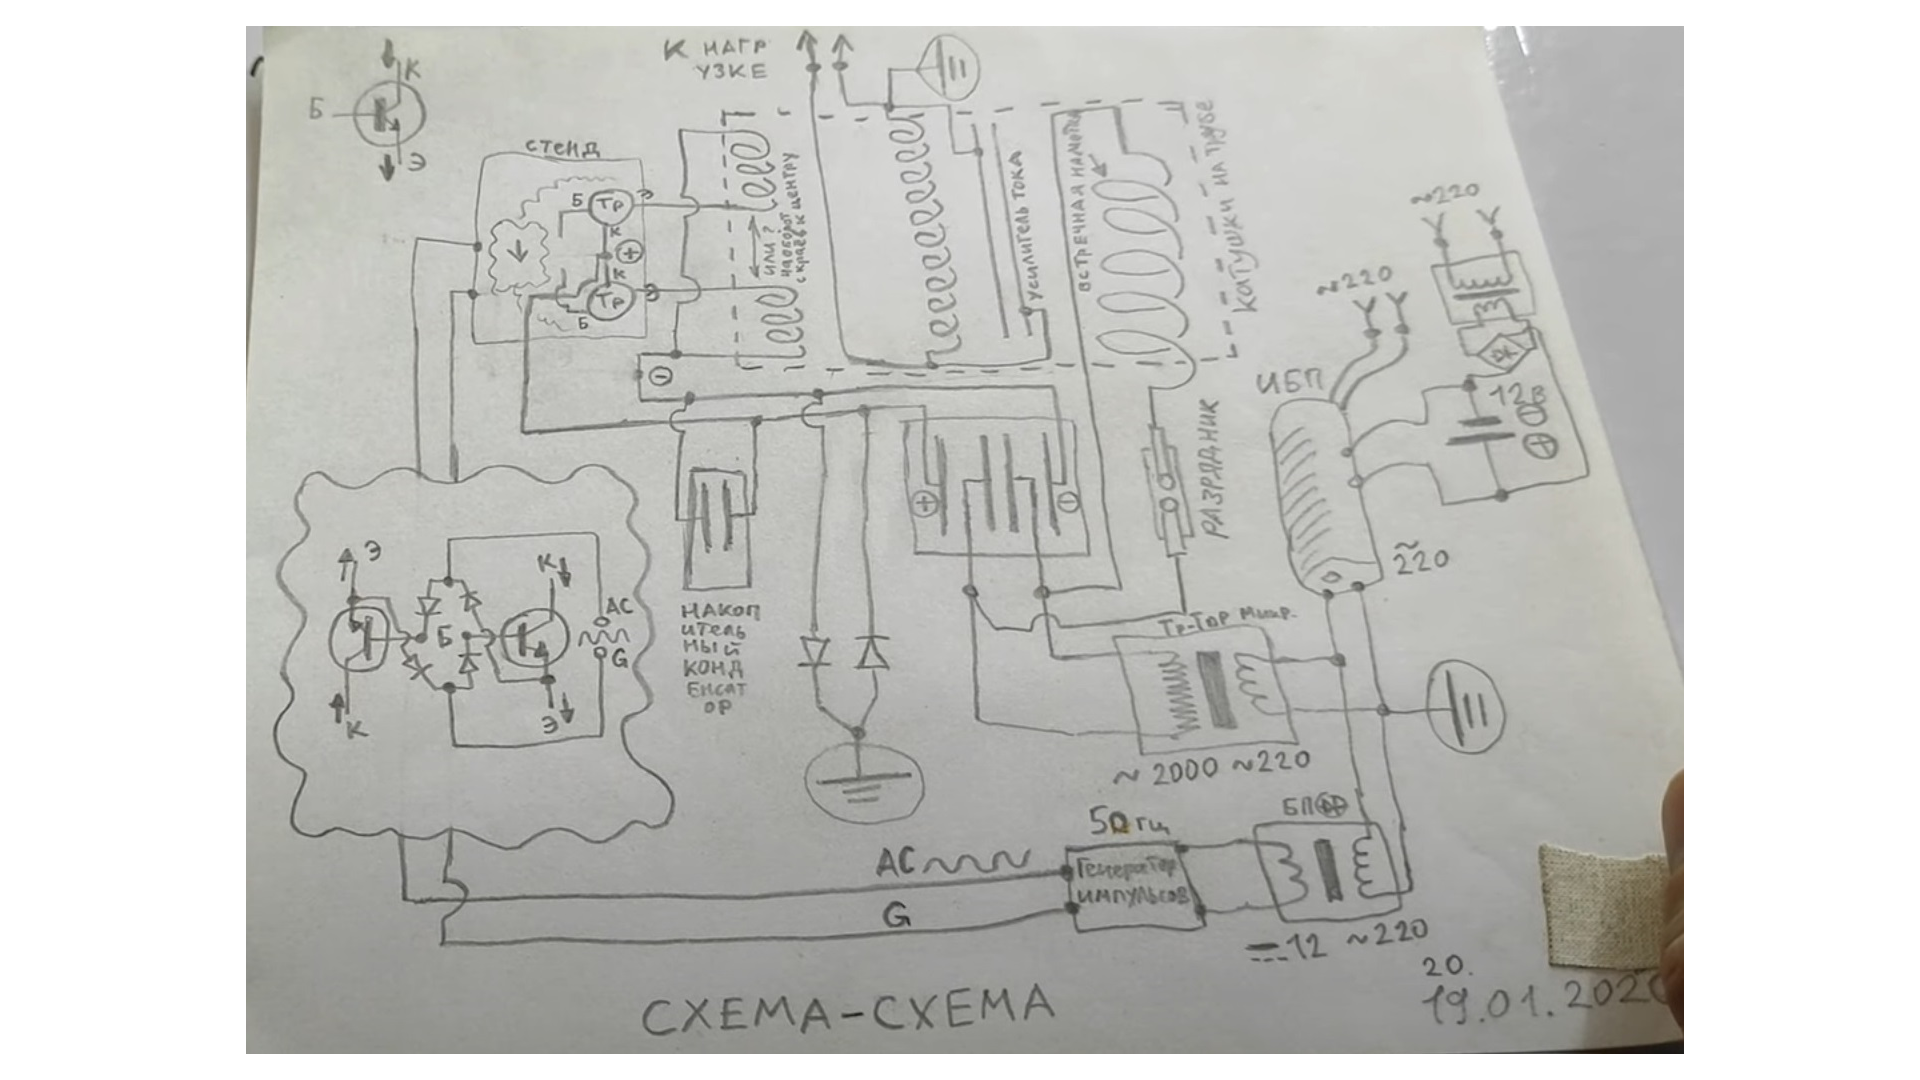 К НАГР
УЗКЕ
К
Б
Э
СТЕНД
Б
Тр
Э
К
+
К
Тр
Э
Б
ИЛИ?
НАОБОРОТ
с КРАЁВ К ЦЕНТРУ
УСИЛИТЕЛЬ ТОКА
ВСТРЕЧНАЯ НАМОТКА
КАТУШКИ НА ТРУБЕ
~220
~220
ИБП
12в
−
+
~220
−
+
−
РАЗРЯДНИК
Э
К
АС
Б
G
К
Э
НАКОП
ИТЕЛЬ
НЫЙ
КОНД
ЕНСАТ
ОР
~2000 ~220
50 гц
БП
АС
Генератор
ИМПУЛЬСОВ
G
12 ~220
20.
19.01.202
СХЕМА-СХЕМА